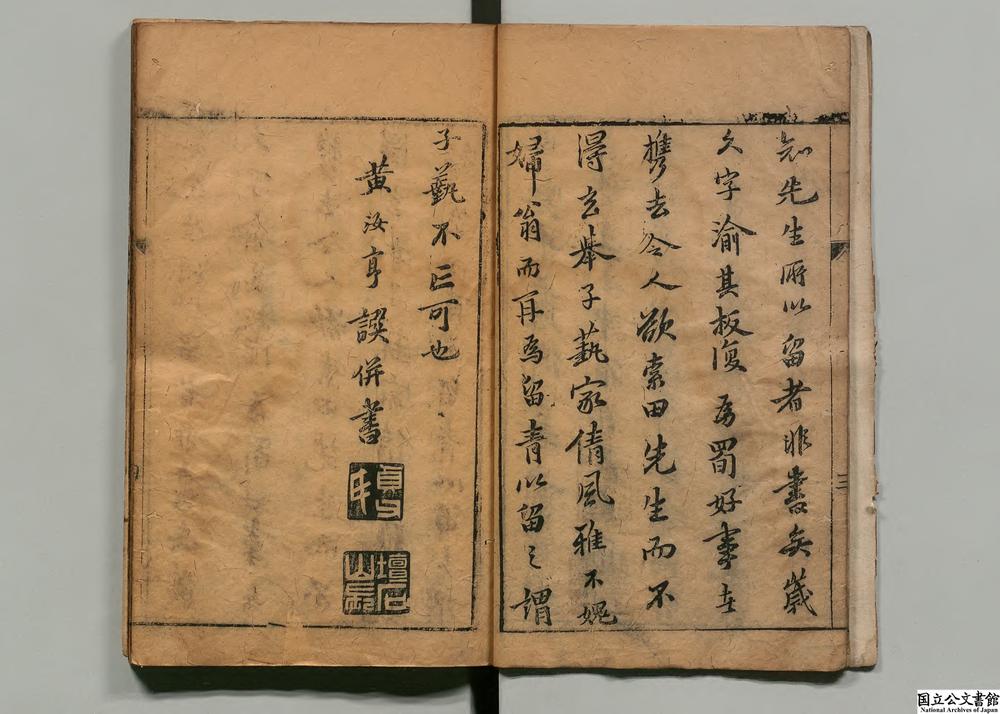 知先生所以留者非書矣歲
久字渝其板復為蜀好事者
攜去令人欲索田先生而不
得玄舉子藝家倩風雅不媿
婦翁而再為留青以留之謂
子藝不亡可也
黃汝亨譔併書
貞父
壇石山長
国立公文書館
National Archives of Japan